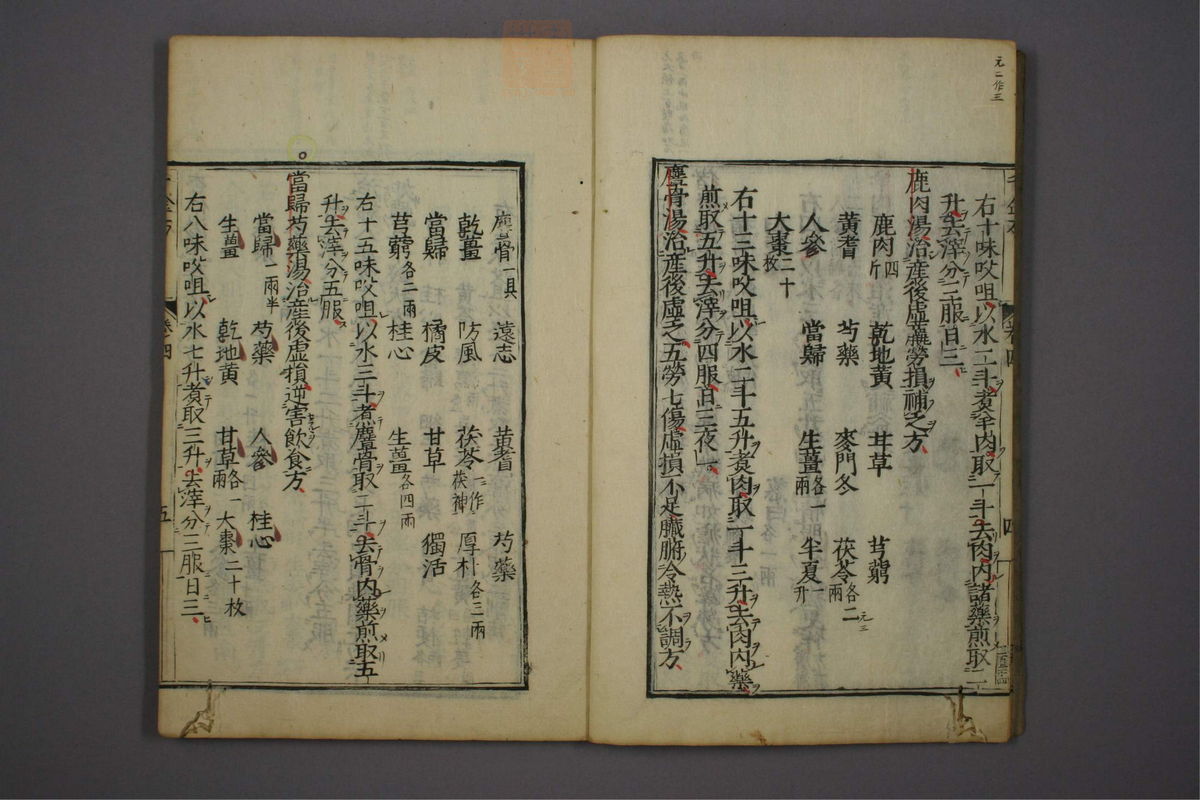 元二作三
右十味㕮咀以水二斗煮羊肉取一斗去肉内諸藥煎取二
升去滓分三服日三
鹿肉湯治産後虛羸勞損補之方
鹿肉四斤 乾地黄 甘草 芎藭
黄耆 芍藥 麥門冬 茯苓各二兩
元三
人參 當歸 生薑各一兩 半夏一升
大棗二十枚
右十三味㕮咀以水二斗五升煮肉取一斗三升去肉内藥
煎取五升去滓分四服日三夜一
麞骨湯治産後虛乏五勞七傷虛損不足臟腑冷熱不調方
卷四
四
麞骨一具 遠志 黄耆 芍藥
乾薑 防風 茯苓一作茯神 厚朴各三兩
當歸 橘皮 甘草 獨活
芎藭各二兩 桂心 生薑各四兩
右十五味㕮咀以水三斗煮麞骨取二斗去骨内藥煎取五
升去滓分五服
當歸芍藥湯治産後虛損逆害飲食方
當歸一兩半 芍藥 人參 桂心
生薑 乾地黄 甘草各一兩 大棗二十枚
右八味㕮咀以水七升煮取三升去滓分三服日三
卷四
五